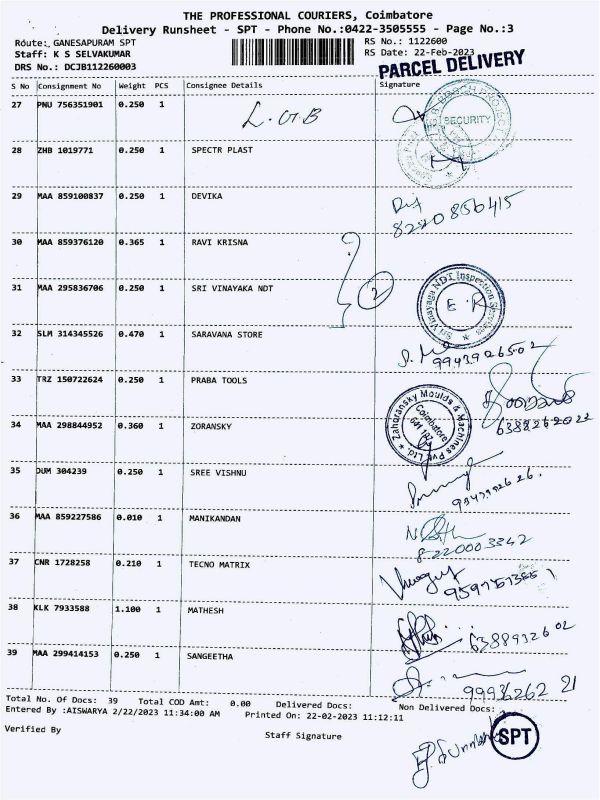 THE PROFESSIONAL COURIERS, Coimbatore
Delivery Runsheet - SPT - Phone No.:0422-3505555 - Page No.:3
Route: GANESAPURAM SPT
RS No.: 1122600
Staff: K S SELVAKUMAR
RS Date: 22-Feb-2023
DRS No.: DCJB112260003
PARCEL DELIVERY
S No Consignment No Weight PCS Consignee Details Signature
27 PNU 756351901 0.250 1 L.GB
SECURITY
28 ZHB 1019771 0.250 1 SPECTR PLAST
29 MAA 859100837 0.250 1 DEVIKA
8220856415
30 MAA 859376120 0.365 1 RAVI KRISNA
2
31 MAA 295836706 0.250 1 SRI VINAYAKA NDT
Sri Vinayaga NDT Inspection Services
32 SLM 314345526 0.470 1 SARAVANA STORE
9943926502
33 TRZ 150722624 0.250 1 PRABA TOOLS
6388262022
34 MAA 298844952 0.360 1 ZORANSKY
Zahoransky Moulds & Machines Pvt Ltd
Coimbatore
641 107
35 DUM 304239 0.250 1 SREE VISHNU
36 MAA 859227586 0.010 1 MANIKANDAN
8220003342
37 CNR 1728258 0.210 1 TECNO MATRIX
38 KLK 7933588 1.100 1 MATHESH
39 MAA 299414153 0.250 1 SANGEETHA
Total No. Of Docs: 39 Total COD Amt: 0.00 Delivered Docs: Non Delivered Docs:
Entered By :AISWARYA 2/22/2023 11:34:00 AM Printed On: 22-02-2023 11:12:11
Verified By Staff Signature
SPT